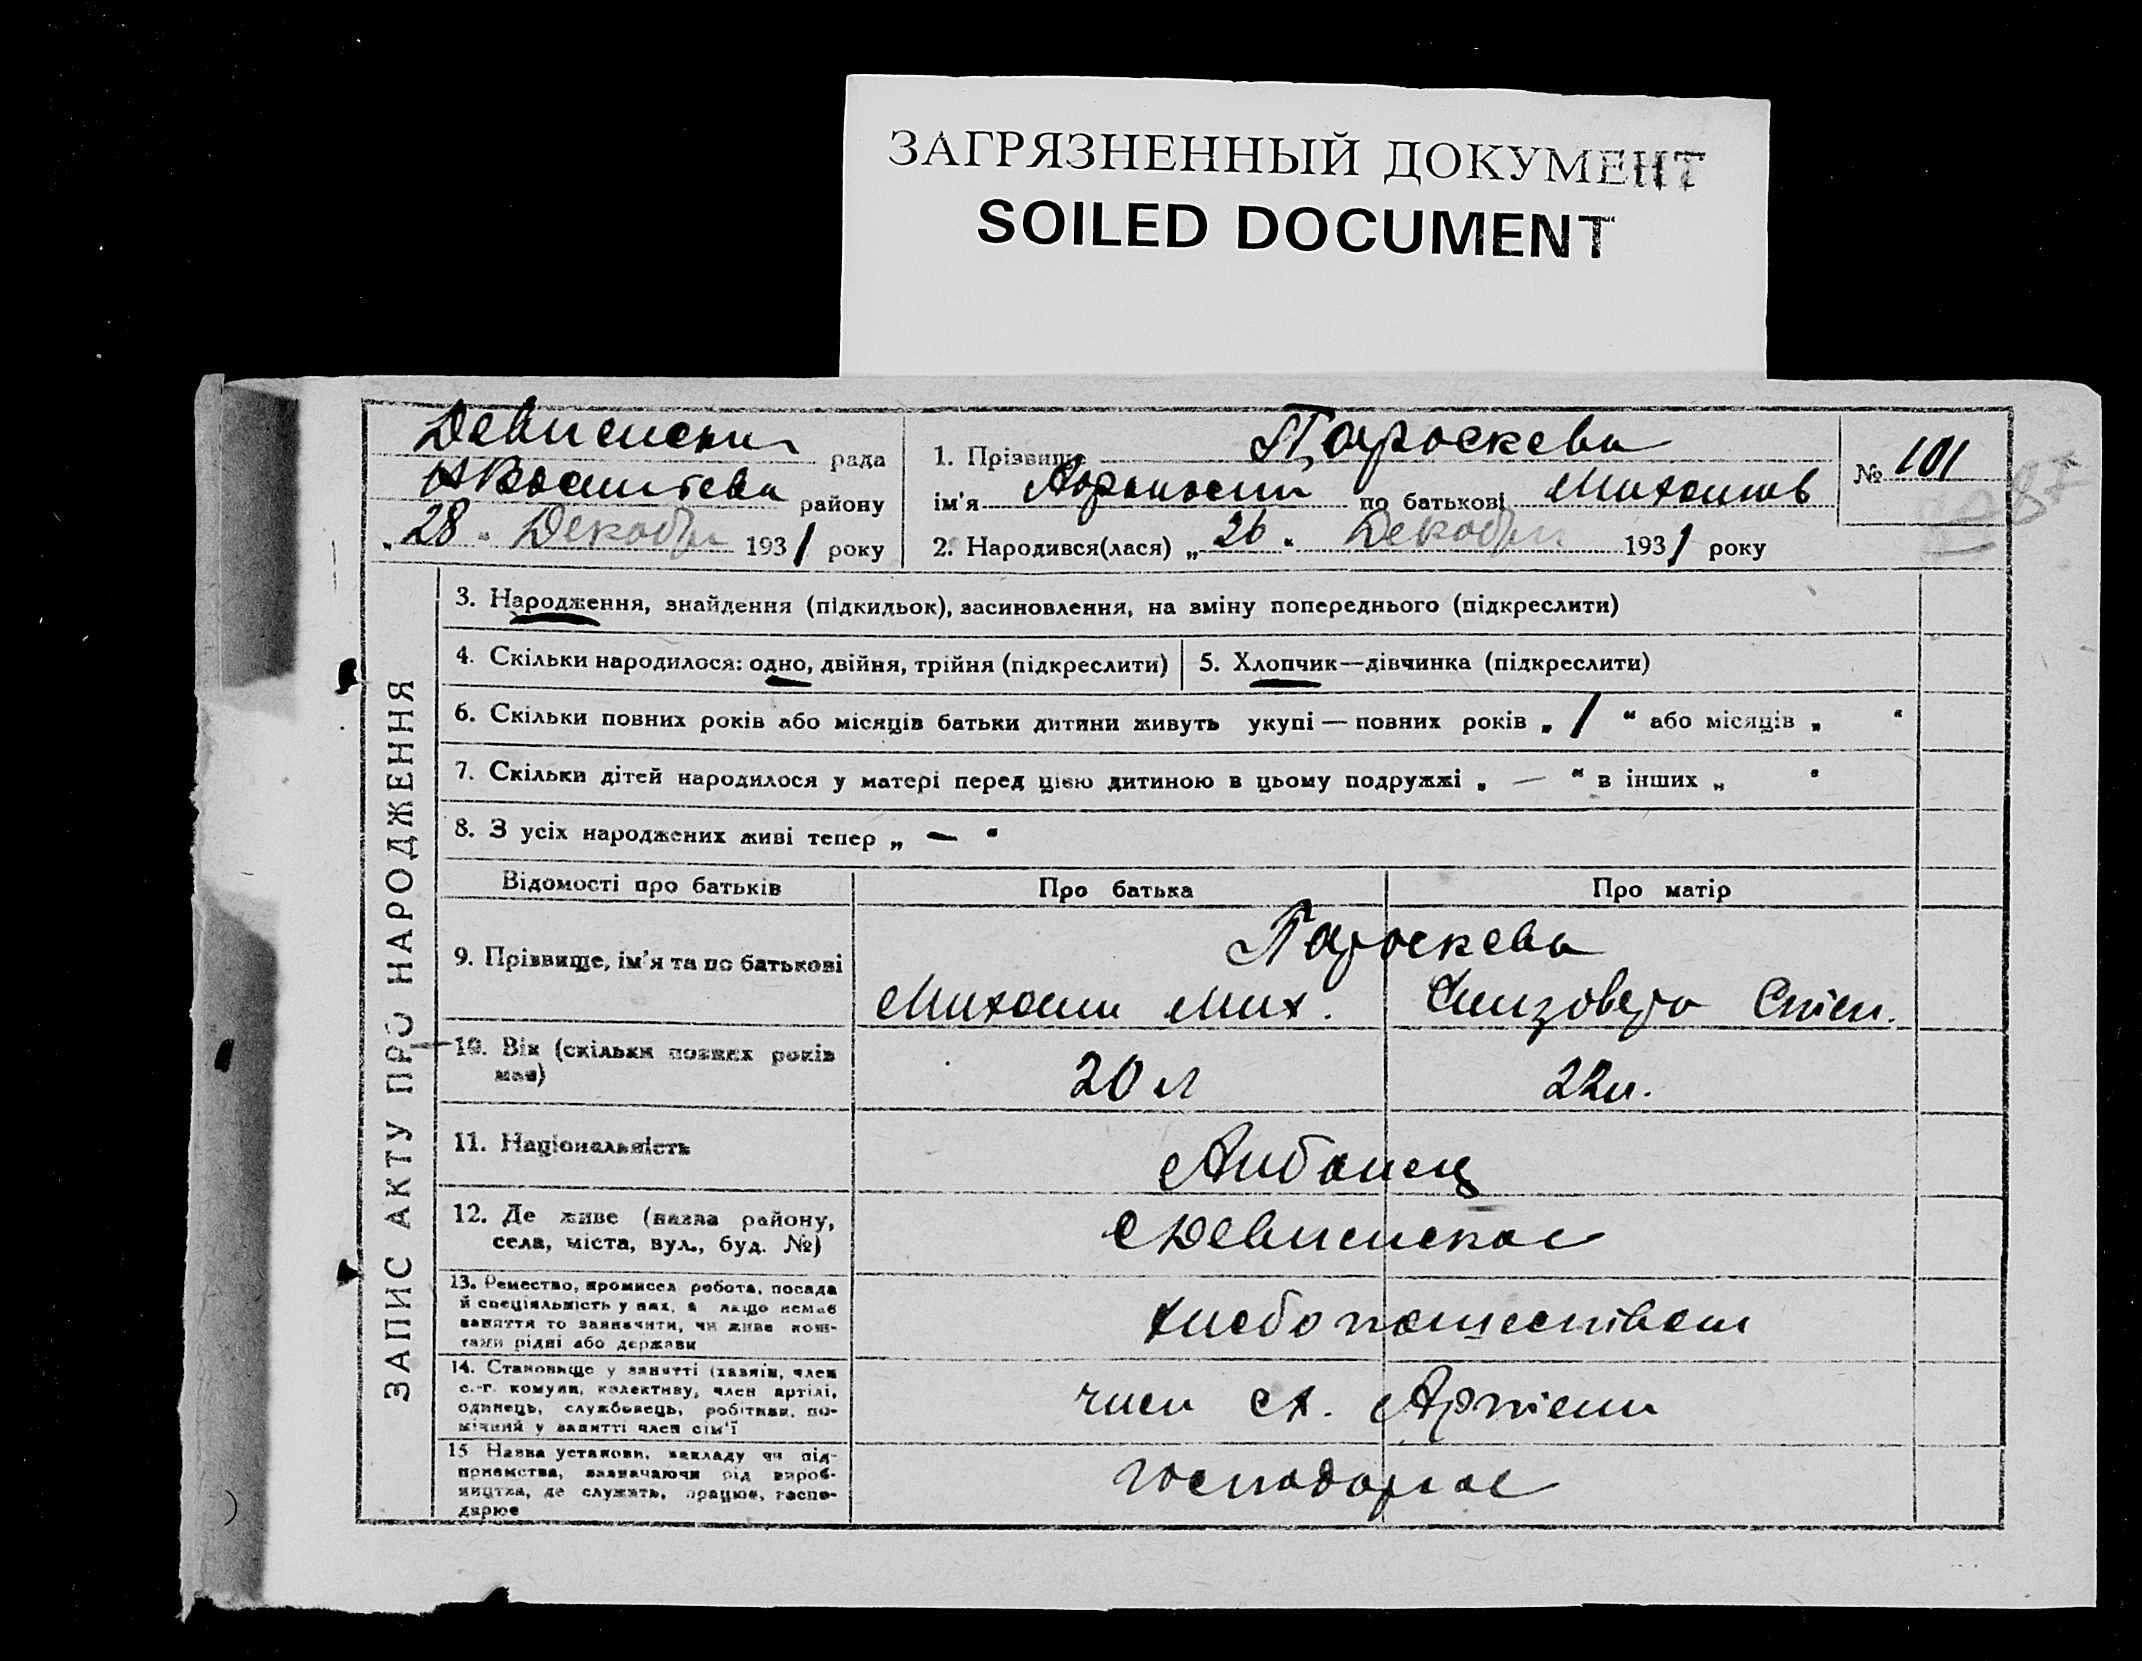 ЗАГРЯЗНЕННЫЙ ДОКУМЕНТ
SOILED DOCUMENT
рада
району
„28“ Декабри 1931 року
1. Прізвище Параскева
ім'я по батькові Михаилов
2. Народився(лася) „26“ Декабри 1931 року
№ 101
ЗАПИС АКТУ ПРО НАРОДЖЕННЯ
3. Народження, знайдення (підкидьок), засиновлення, на зміну попереднього (підкреслити)
4. Скільки народилося: одно, двійня, трійня (підкреслити)
5. Хлопчик—дівчинка (підкреслити)
6. Скільки повних років або місяців батьки дитини живуть укупі — повних років „ 1 “ або місяців „ “
7. Скільки дітей народилося у матері перед цією дитиною в цьому подружжі „ — “ в інших „ “
8. З усіх народжених живі тепер „ — “
Відомості про батьків
Про батька
Про матір
9. Прізвище, ім'я та по батькові
Параскева
Михаил Мих.
Степ.
10. Вік (скільки повних років
має)
20 л
22 л.
11. Національність
Албанец
12. Де живе (назва району,
села, міста, вул., буд. №)
с Девленское
13. Ремество, промисел робота, посада
й спеціяльність у них, а якщо немає
заняття то зазначити, чи живе кош-
тами рідні або держави
хлебопашеством
14. Становище у занятті (хазяїн, член
с.-г. комуни, колективу, член артілі,
одинець, службовець, робітник, по-
мічний у занятті член сім'ї
член сх. Артели
15 Назва установи, закладу чи під-
приємства, зазначаючи рід вироб-
ництва, де служить, працює, госпо-
дарює